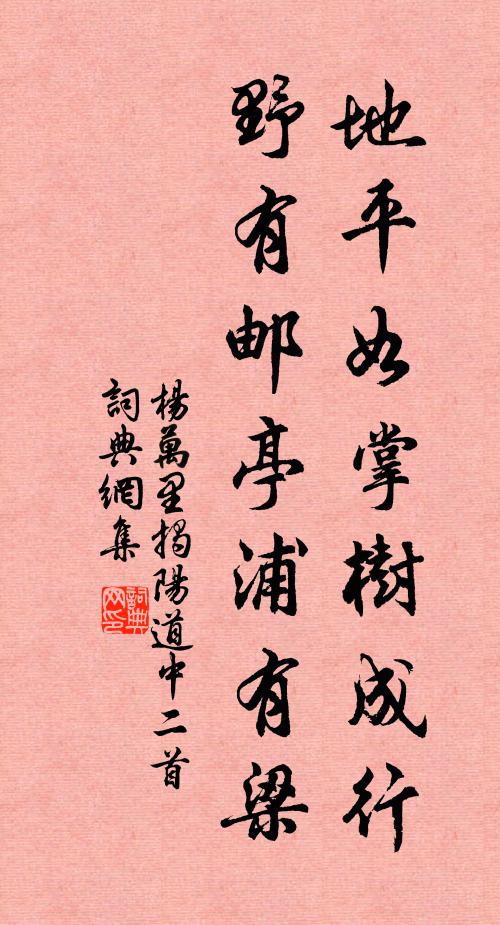 地平如掌樹成行
野有邮亭浦有梁
楊萬里揭陽道中二首
詞典網集
詞典
网印